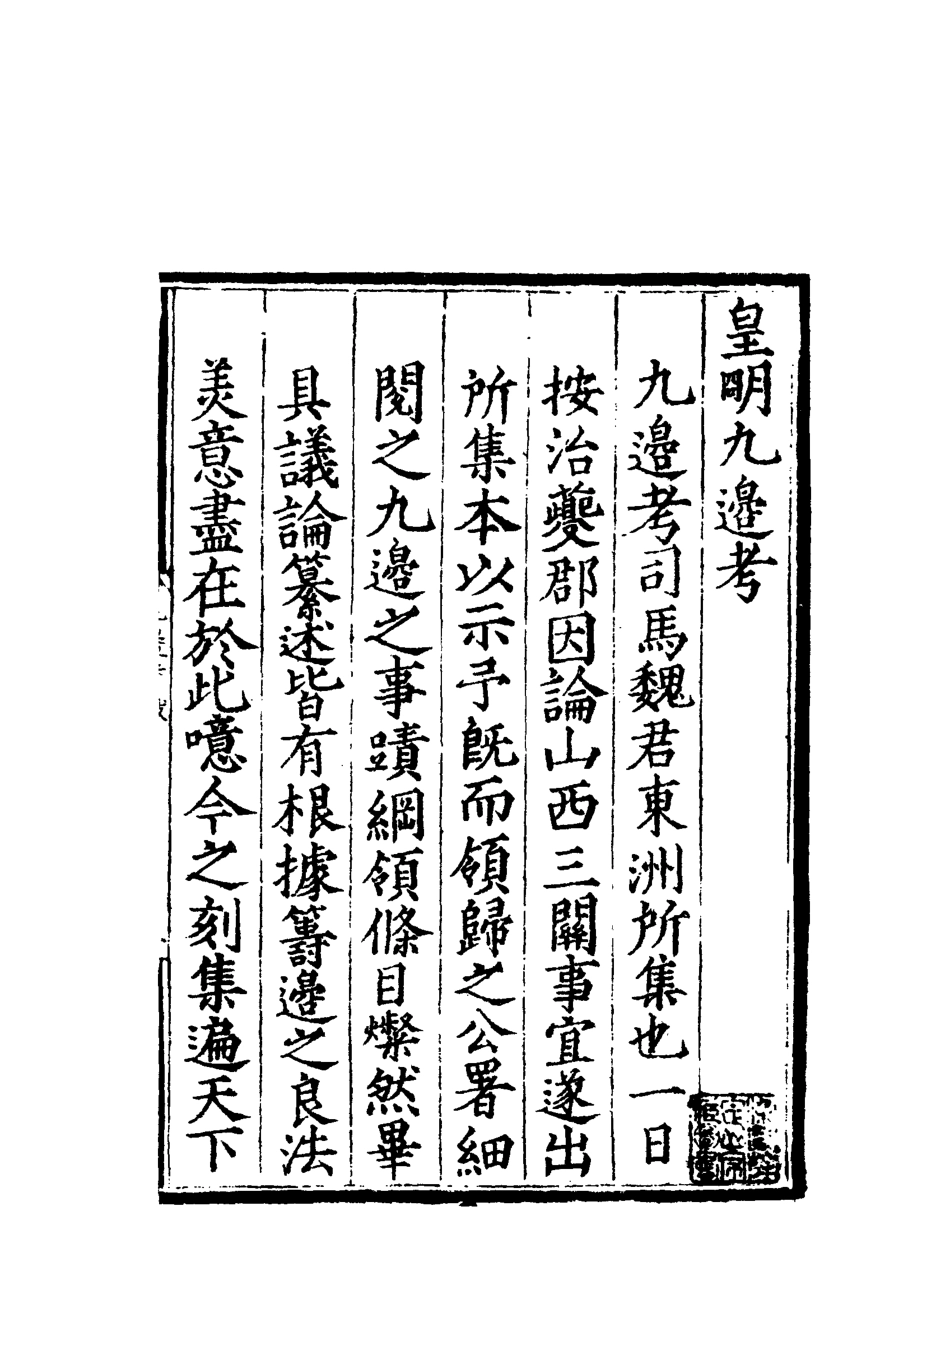 皇明九邉考
九邉考司馬魏君東洲所集也一日
按治夔郡因論山西三關事宜遂出
所集本以示予既而領歸之公署細
閱之九邉之事蹟綱領條目燦然畢
具議論纂述皆有根據籌邉之良法
美意盡在於此噫今之刻集遍天下